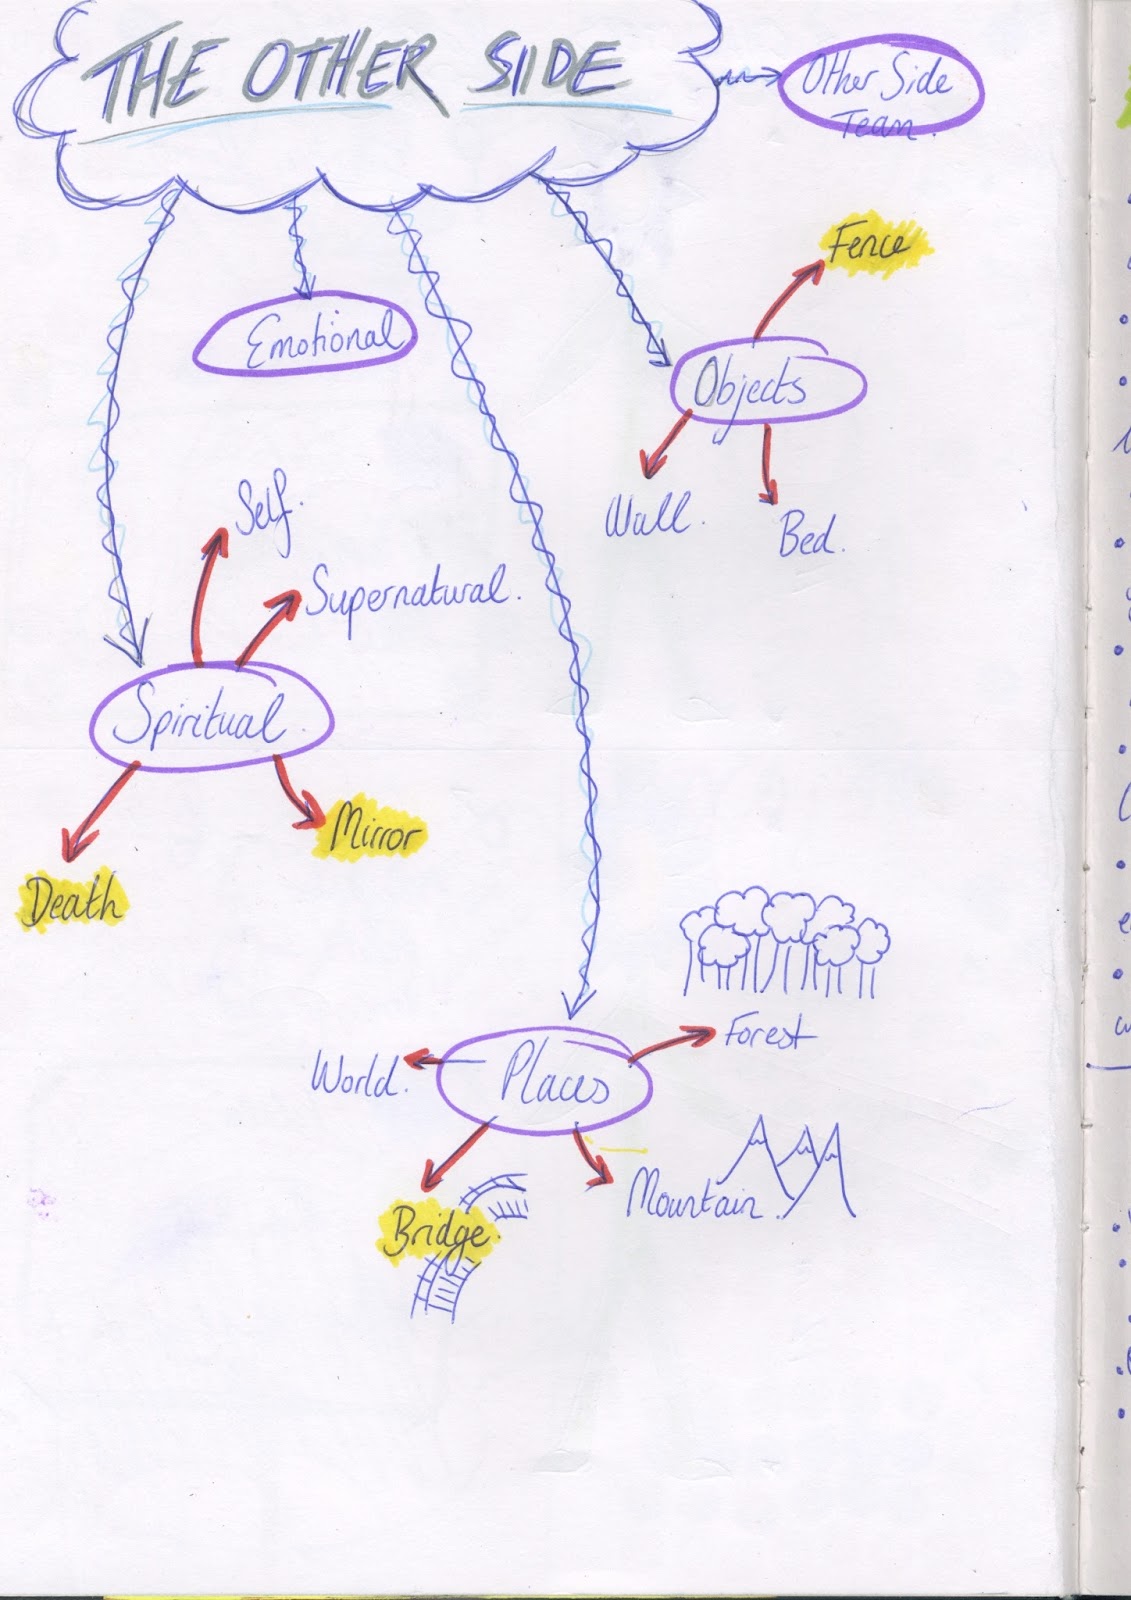 THE OTHER SIDE
Other Side
Team.
Fence
Emotional
Objects
Self.
Wall.
Bed.
Supernatural.
Spiritual.
Mirror
Death
Forest
World.
Places
Mountain.
Bridge.